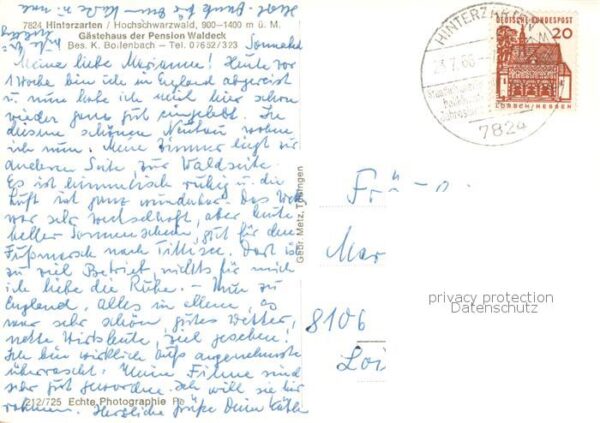 7824 Hinterzarten / Hochschwarzwald, 900-1400 m ü. M.
Gästehaus der Pension Waldeck
Bes. K. Bollenbach — Tel. 07652/323
Sonnabd
Meine liebe Marianne! Heute vor
1 Woche bin ich in England abgereist
u. nun habe ich mich hier schon
wieder ganz gut eingelebt. In
diesem schönen Neubau wohne
ich nun. Meine Zimmer liegt zur
anderen Seite, zur Waldseite.
Es ist himmlisch ruhig u. die
Luft ist ganz wunderbar. Das Wetter
war sehr wechselhaft, aber heute
heller Sonnenschein, gut für den
Fußmarsch nach Titisee. Dort ist
zu viel Betrieb, nichts für mich
ich liebe die Ruhe. — Nun zu
England, alles in allem, es
war sehr schön, gutes Wetter,
nette Wirtsleute, viel gesehen.
Ich bin wirklich aufs angenehmste
überrascht. Meine Filme sind
sehr gut geworden. Ich will sie hier
rahmen. Herzliche Grüße Deine Käthe
212/725 Echte Photographie
Gebr. Metz, Tübingen
HINTERZARTEN
7824
DEUTSCHE BUNDESPOST
20
LORSCH/HESSEN
Mar
8106
Loi
privacy protection
Datenschutz